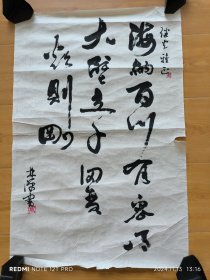 海納百川有容乃
大壁立千仞無
欲則剛
REDMI NOTE 12T PRO
2024/11/13 13:16